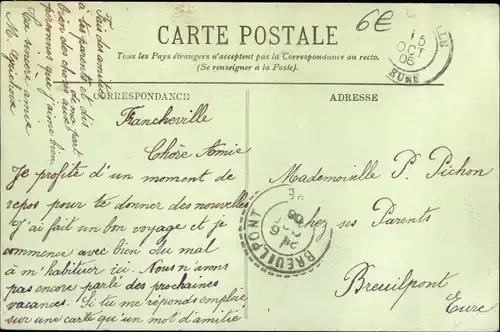 6€
CARTE POSTALE
Tous les Pays étrangers n'acceptent pas la Correspondance au recto.
(Se renseigner à la Poste).
15
OCT
06
EURE
CORRESPONDANCE
ADRESSE
Francheville
Chère Amie
Je profite d'un moment de
repos pour te donner des nouvelles
J'ai fait un bon voyage et je
commence avec bien du mal
à m'habituer ici. Nous n'avons
pas encore parlé des prochaines
vacances. Si tu me réponds emploie
sur une carte qu'un mot d'amitié
Fais des amitiés
à tes parents et dis
bien des choses aux
de ma part
personnes que j'aime bien
Ta sincère amie
M.
BREUILPONT
Mademoiselle P. Pichon
chez ses Parents
Breuilpont
Eure